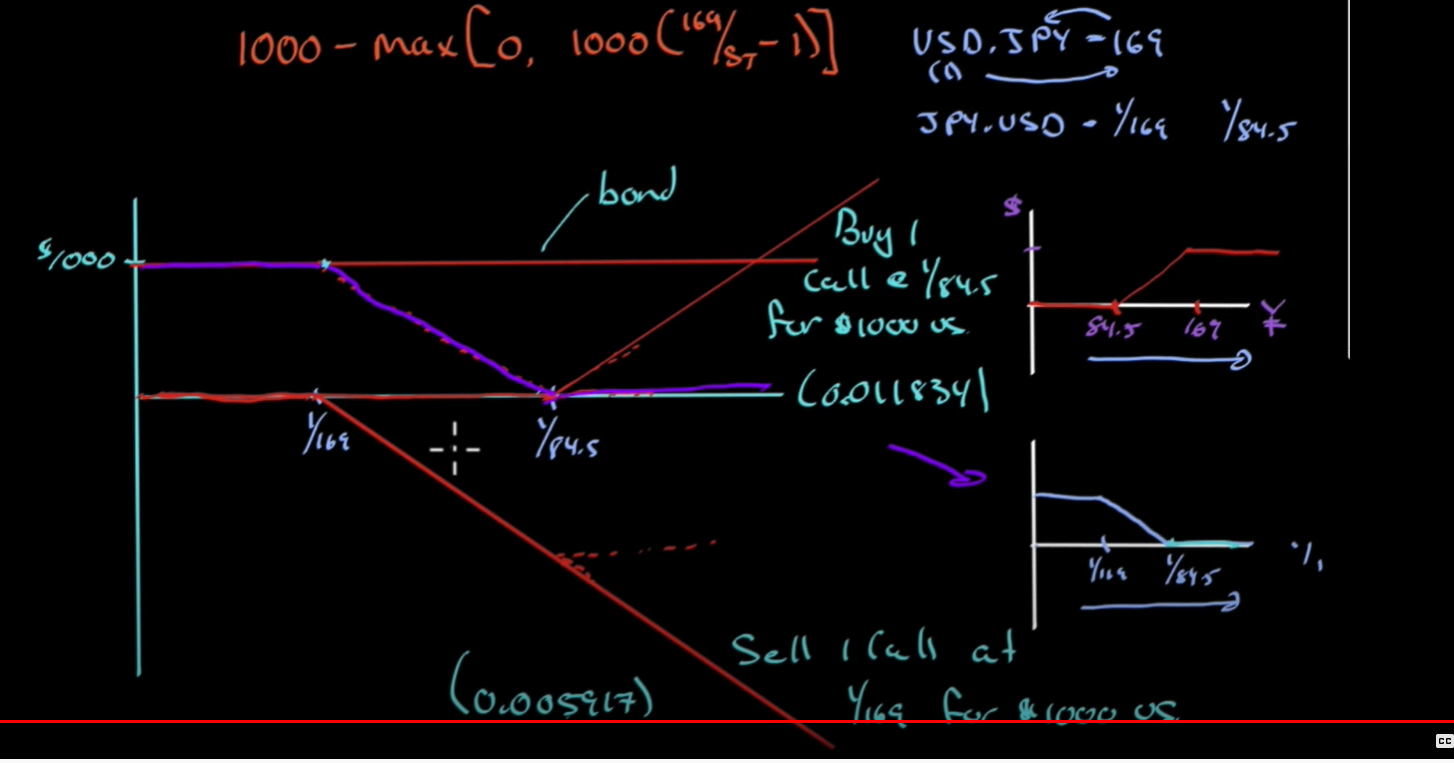 1000 - max[0, 1000(169/ST - 1)]
USD.JPY - 169
(1)
JPY.USD - 1/169 1/84.5
bond
$1000
Buy 1
call @ 1/84.5
for $1000 us.
(0.011834)
1/169
1/84.5
$
84.5 169 ¥
1/169 1/84.5
Sell 1 call at
1/169 for $1000 us.
(0.005917)
CC